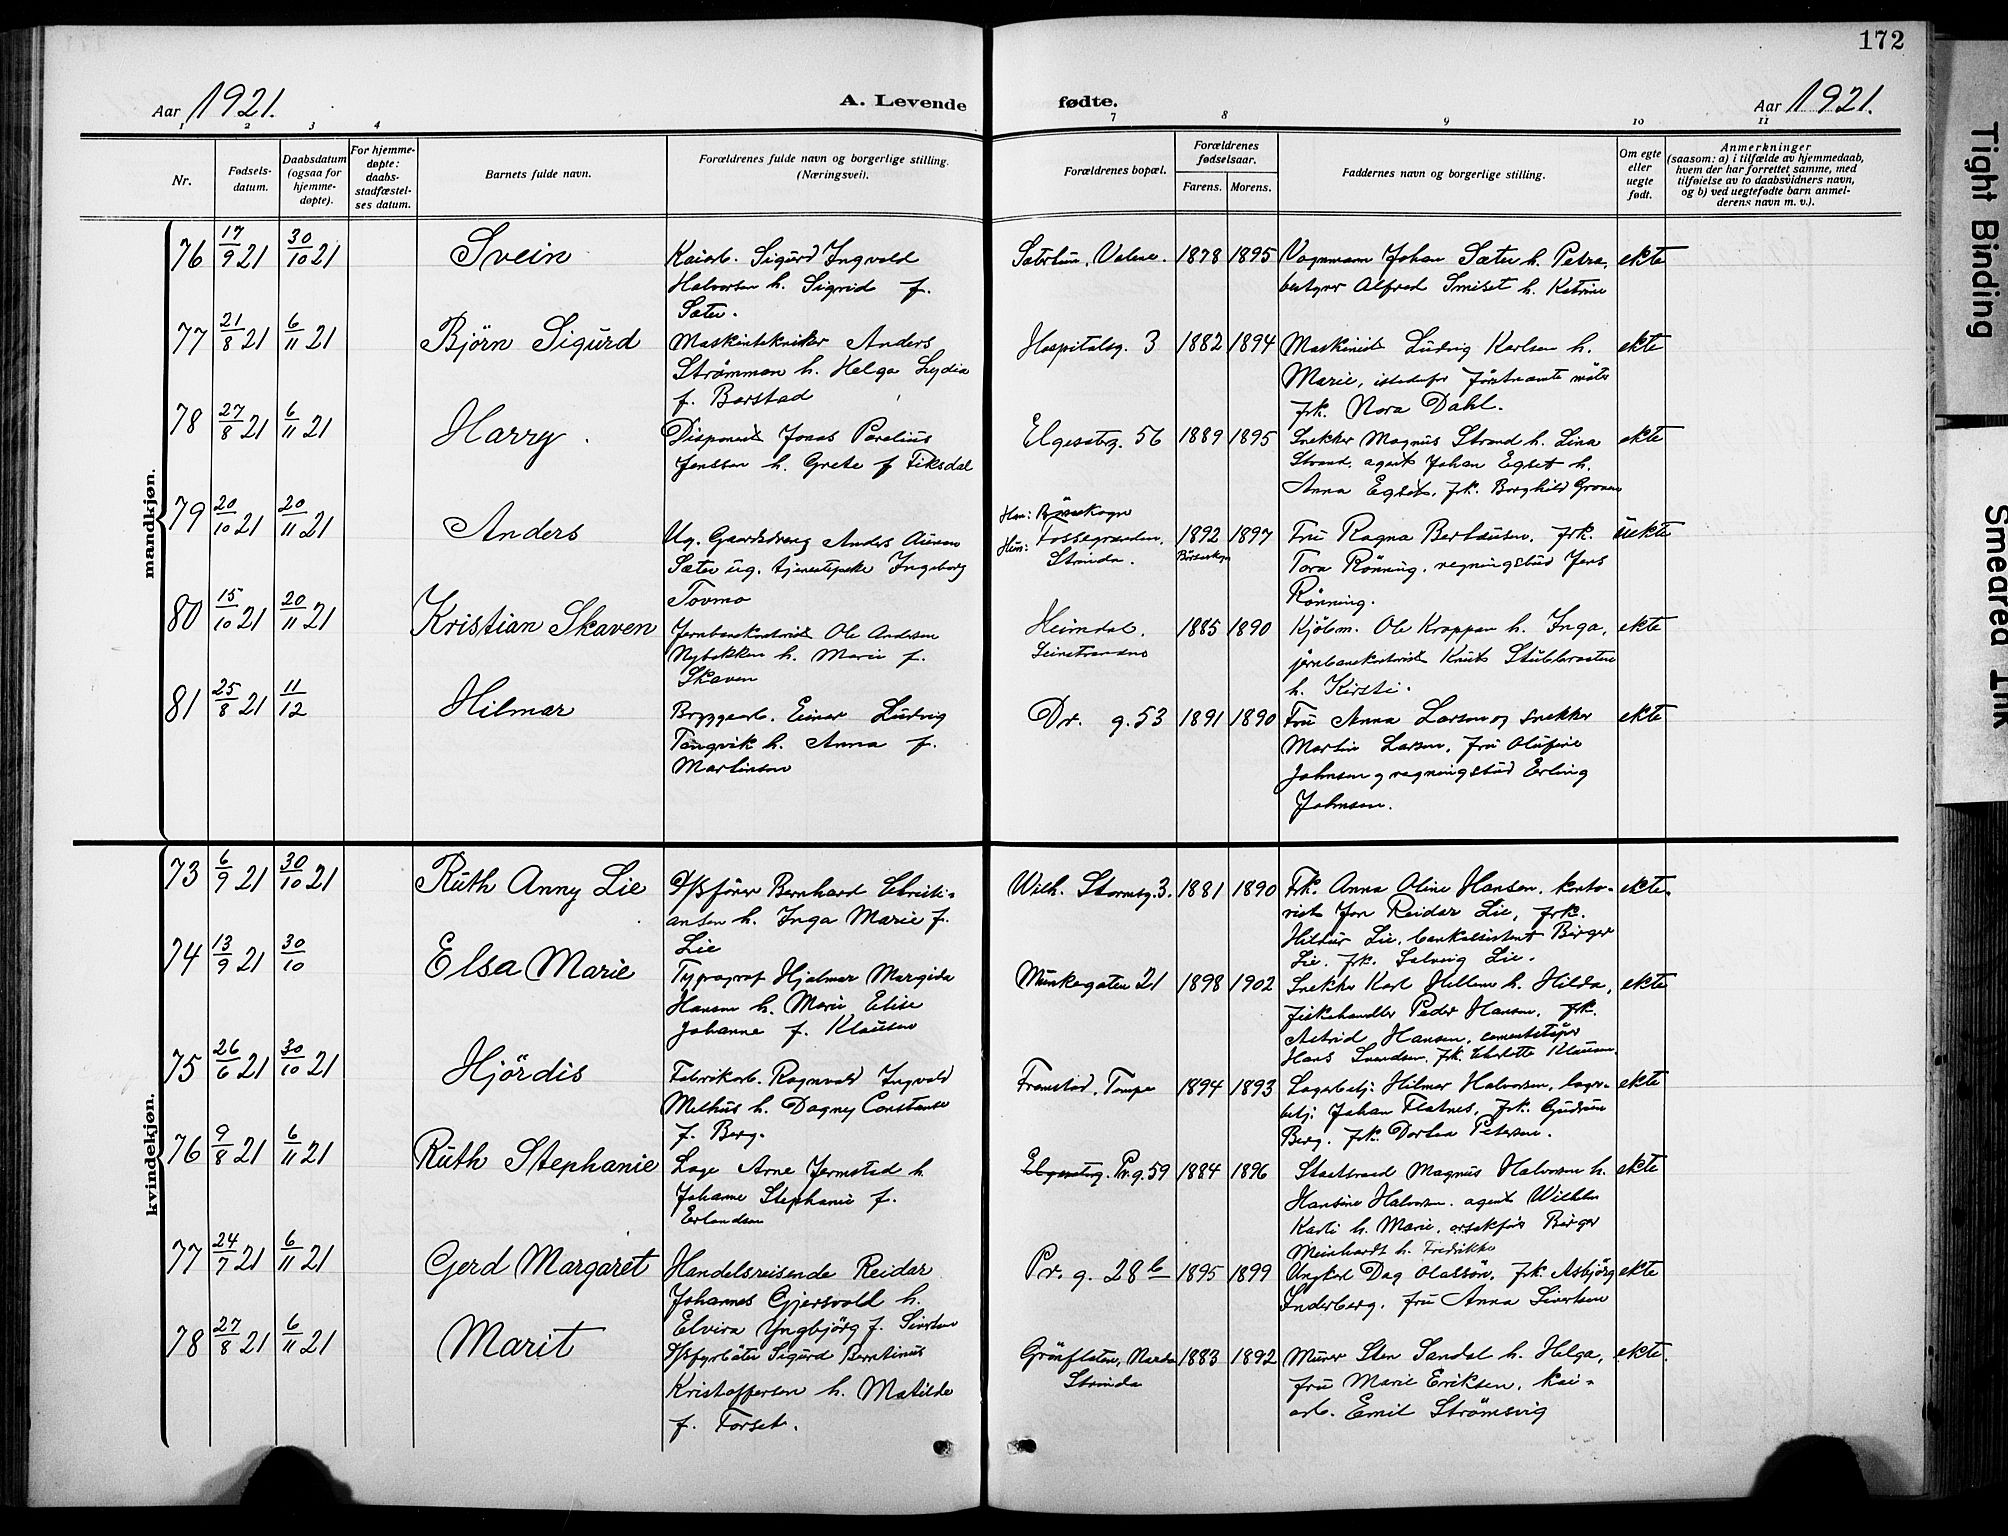 172
Aar 1921.
A. Levende fødte.
Aar 1921.
1 2 3 4 7 8 9 10 11
Nr.
Fødsels-
datum.
Daabsdatum
(ogsaa for
hjemme-
døpte).
For hjemme-
døpte:
daabs-
stadfæstel-
ses datum.
Barnets fulde navn.
Forældrenes fulde navn og borgerlige stilling.
(Næringsvei).
Forældrenes bopæl.
Forældrenes
fødselsaar.
Farens. Morens.
Faddernes navn og borgerlige stilling.
Om egte
eller
uegte
født.
Anmerkninger
(saasom: a) i tilfælde av hjemmedaab,
hvem der har forrettet samme, med
tilføielse av to daabsvidners navn,
og b) ved uegtefødte barn anmel-
derens navn m. v.).
mandkjøn.
76 17/9 21 30/10 21 Svein
Kaiarb. Sigurd Ingvald
Halvorsen h. Sigrid f.
Sæter.
Valene. 1878 1895
Vognmann Johan Sæter h. Petra,
bestyrer Alfred Smiset h. Katrine
ekte
77 21/8 21 6/11 21 Björn Sigurd
Maskintekniker Anders
Strømman h. Helga Lydia
f. Barstad
Hospitalsg. 3 1882 1894
Maskinist Ludvig Karlsen h.
Marie, istedenfor förstnævnte møter
frk. Nora Dahl.
ekte
78 27/8 21 6/11 21 Harry.
Disponent Jonas Parelius
Jenssen h. Grete f Fiksdal
Elgesetrg. 56 1889 1895
Snekker Magnus Strand h. Lina
Strand, agent Johan Egset h.
Anna Egset, frk. Borghild Granen
ekte
79 20/10 21 20/11 21 Anders
Ug. Gaardsdreng Anders Aunem
Sæter ug. tjenestepike Ingeborg
Tovmo
Han: Børseskogn
Hun: Fossegrenden,
Strinda.
1892 1897
Børseskogn
Fru Ragna Berhausen, frk.
Tora Rönning, regningsbud Jens
Rönning.
uekte
80 15/10 21 20/11 21 Kristian Skaven
Jernbanekontorist Ole Andersen
Nybakken h. Marie f.
Skaven
Heimdal.
Leinstranden
1885 1890
Kjöbm. Ole Kroppan h. Inga,
jernbanekontorist Knut Stubbraaten
h. Kirsti.
ekte
81 25/8 21 11/12 Hilmar
Bryggearb. Einar Ludvig
Tangvik h. Anna f.
Martinsen
Dr. g. 53 1891 1890
Fru Anna Larsen og snekker
Martin Larsen, fru Olufine
Johnsen og regningsbud Erling
Johnsen.
ekte
kvindekjøn.
73 6/9 21 30/10 21 Ruth Anny Lie
D/sförer Bernhard Christi-
ansen h. Inga Marie f.
Lie
Wilh. Stormsg. 3. 1881 1890
Frk. Anna Oline Hansen, konto-
rist Jon Reidar Lie, frk.
Hildur Lie, bankassistent Birger
Lie. frk. Solveig Lie.
ekte.
74 13/9 21 30/10 Elsa Marie
Typograf Hjalmar Margido
Hansen h. Marie Elise
Johanne f. Klausen
Munkegaten 21 1898 1902
Snekker Karl Hellem h. Hilda,
fiskehandler Peder Hansen, frk.
Astrid Hansen, cementstøper
Hans Svendsen, frk. Charlotte Klausen.
ekte
75 26/6 21 30/10 21 Hjördis
Fabrikarb. Ragnvald Ingvald
Melhus h. Dagny Constanse
f. Berg.
Framstad, Tempe 1894 1893
Lagerbetj. Hilmar Halvorsen, lager-
betj. Johan Flatnes, frk. Gudrun
Berg, frk. Dorthea Petersen.
ekte
76 9/8 21 6/11 21 Ruth Stephanie
Læge Arne Jermstad h
Johanne Stephanie f.
Erlandsen
Elgesetrg. Pr. g. 59 1884 1896
Statsraad Magnus Halvorsen h.
Hansine Halvorsen. agent Wilhelm
Karli h. Marie, orsakfører Birger
Meinhardt h. Fredrikke
ekte
77 24/7 21 6/11 21 Gerd Margaret
Handelsreisende Reidar
Johannes Gjersvold h.
Elvira Yngbjörg f. Sivertsen
Pr. g. 28 b 1895 1899
Ungkarl Dag Olassön, frk. Asbjörg
Inderberg, fru Anna Sivertsen
ekte
78 27/8 21 6/11 21 Marit
D/sfyrböter Sigurd Berntinus
Kristoffersen h. Matilde
f. Forset.
Grönflaten, Nardo
Strinda
1883 1892
Murer Sten Sandal h. Helga,
fru Marie Eriksen, kai-
arb. Emil Strömsvig
ekte.
Tight Binding
Smeared Ink